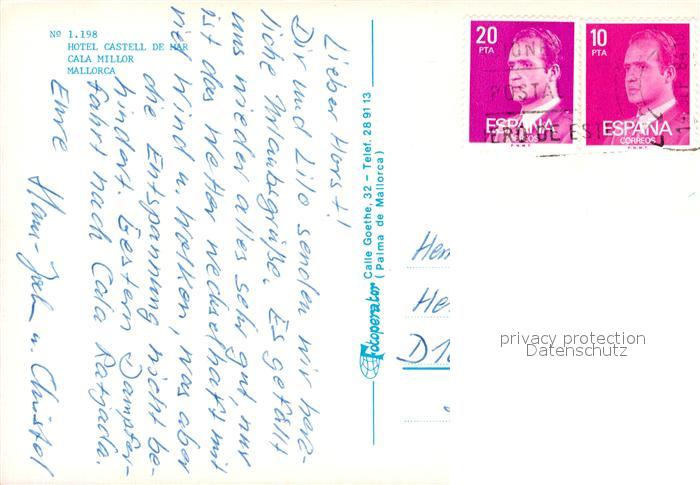 Nº 1.198
HOTEL CASTELL DE MAR
CALA MILLOR
MALLORCA
Lieber Horst!
Dir und Lilo senden wir herz-
liche Urlaubsgrüße. Es gefällt
uns wieder alles sehr gut, nur
ist das Wetter wechselhaft mit
viel Wind u. Wolken, was aber
die Entspannung nicht be-
hindert. Gestern Dampfer-
fahrt nach Cala Ratjada.
Eure Hans- u. Christel
Fotoperator Calle Goethe, 32 – Telef. 28 91 13
( Palma de Mallorca )
20
PTA
ESPAÑA
CORREOS
F.N.M.T.
10
PTA
ESPAÑA
CORREOS
F.N.M.T.
POSTAL
DE
Her
He
D 1
privacy protection
Datenschutz